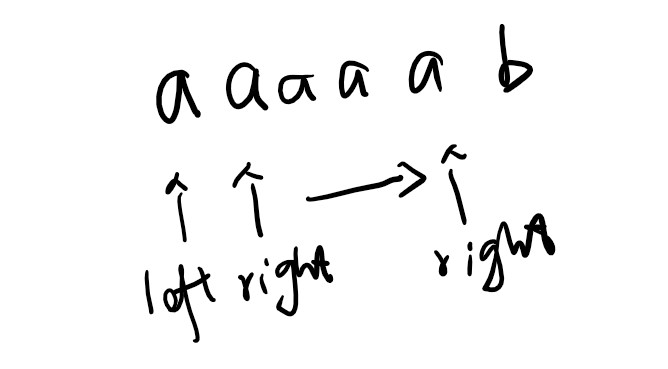 a a a a a b
left right right